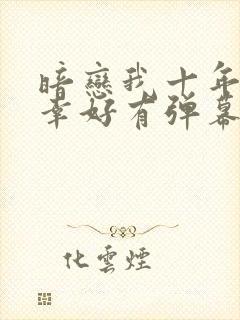 暗戀我十年
幸好有彈幕
化雲煙